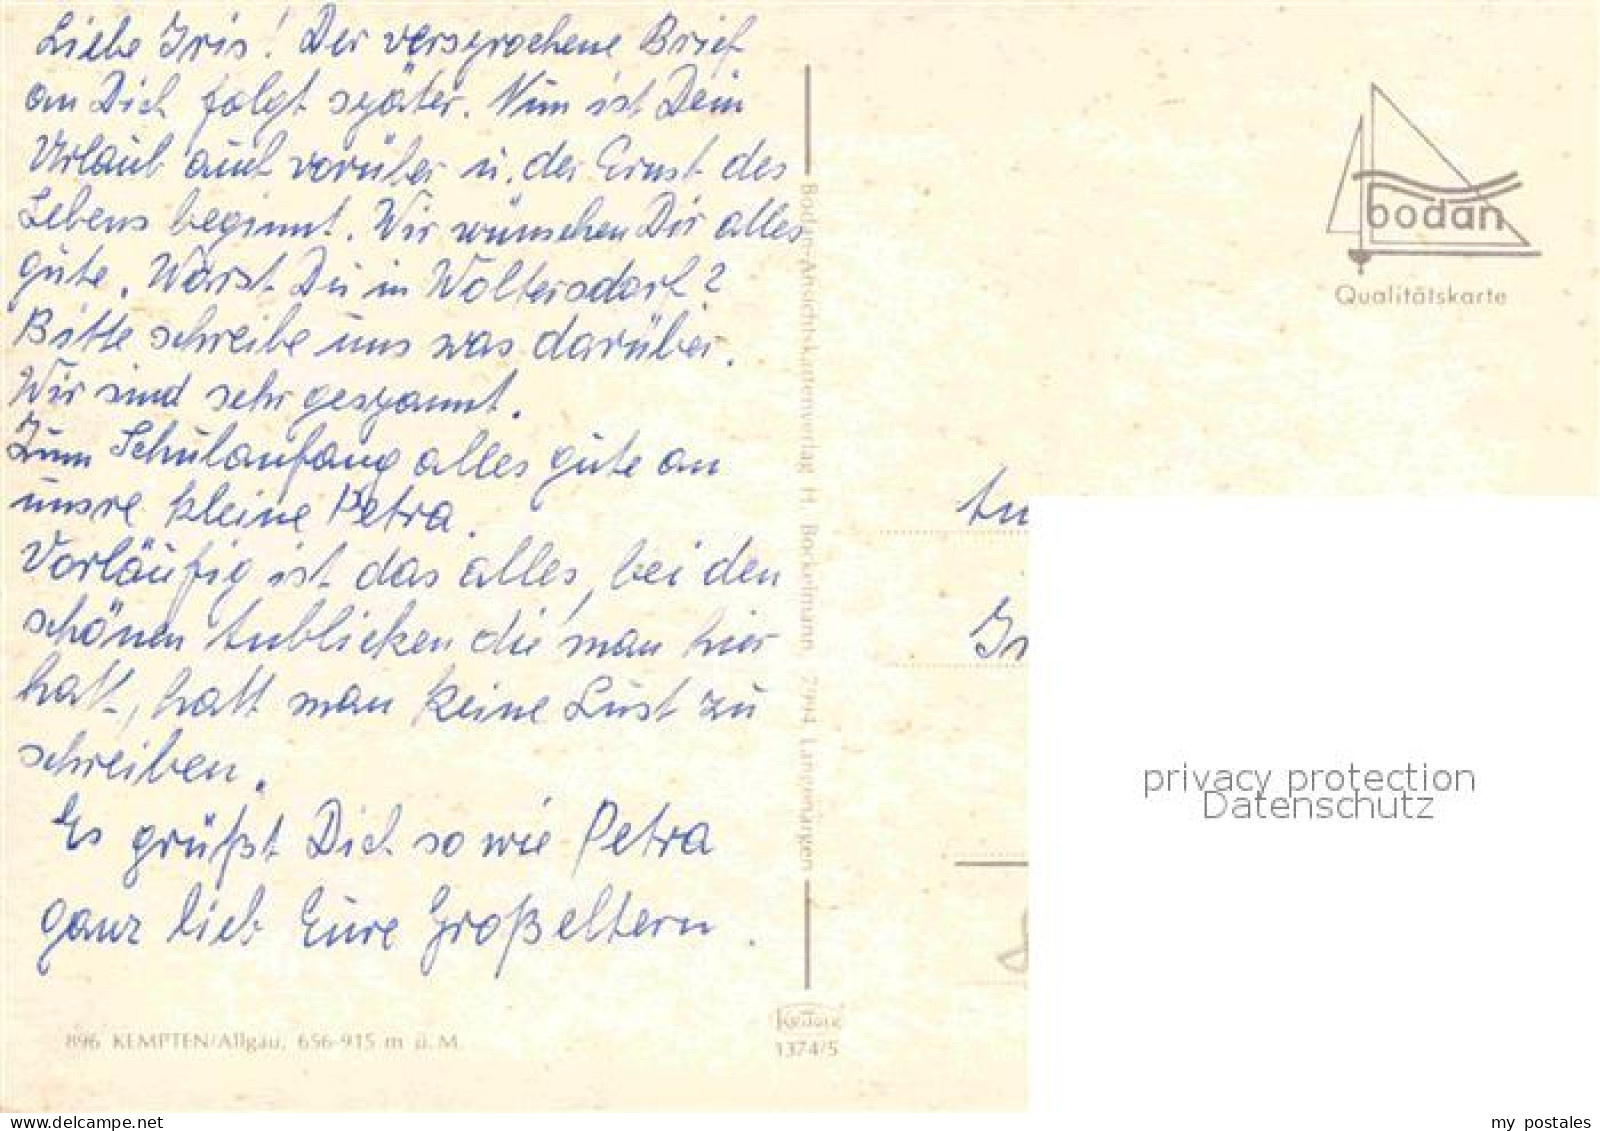 Liebe Iris! Der versprochene Brief
an Dich folgt später. Nun ist Dein
Urlaub auch vorüber u. der Ernst des
Lebens beginnt. Wir wünschen Dir alles
gute. Warst Du in Woltersdorf?
Bitte schreibe uns was darüber.
Wir sind sehr gespannt.
Zum Schulanfang alles gute an
unsre kleine Petra.
Vorläufig ist das alles, bei den
schönen Anblicken die man hier
hatt, hatt man keine Lust zu
schreiben.
Es grüßt Dich sowie Petra
ganz lieb Eure Großeltern.
896 KEMPTEN/Allgäu, 656-915 m ü. M.
Bodan-Ansichtskartenverlag H. Bockelmann, 7994 Langenargen
1374/5
bodan
Qualitätskarte
An
privacy protection
Datenschutz
www.delcampe.net
my_postales